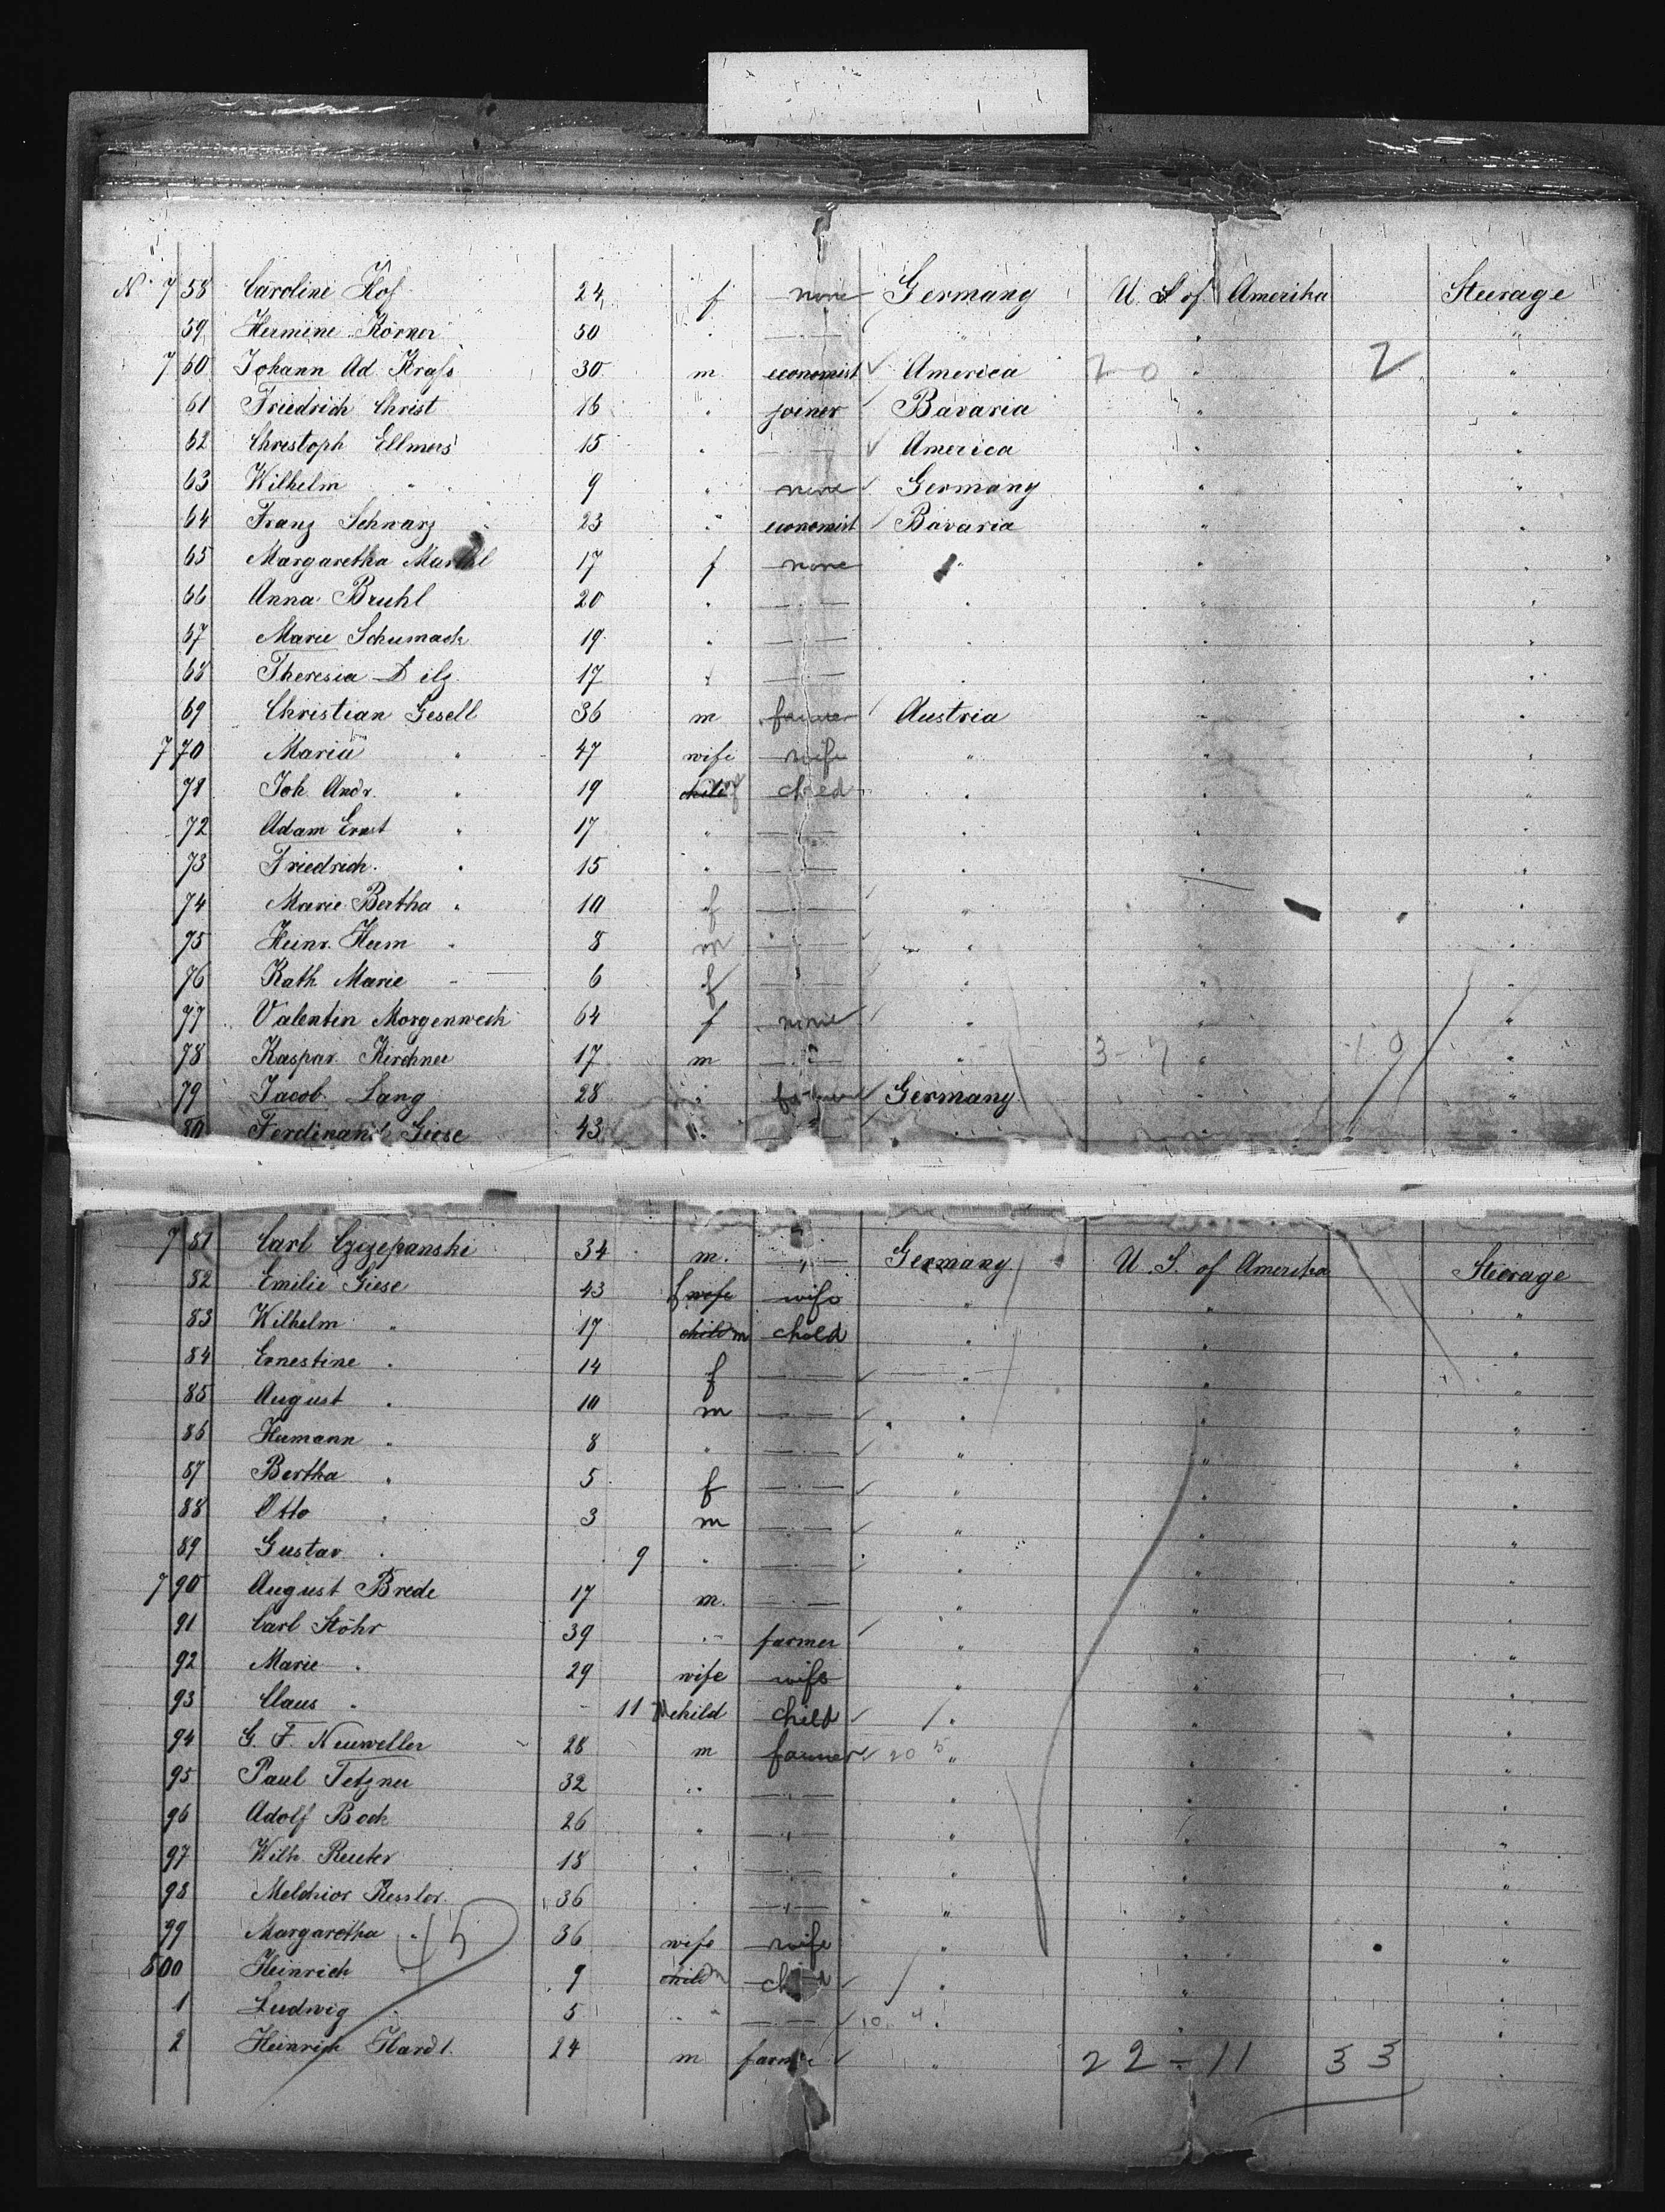 N 7 58 Caroline Hof 24 f none Germany U. S. of Amerika Steerage
59 Hermine Körner 50 " — " " "
7 60 Johann Ad. Krafs 30 m economist America 20 " 2 "
61 Friedrich Christ 16 " joiner Bavaria " "
62 Christoph Ellmers 15 " — America " "
63 Wilhelm " 9 " none Germany " "
64 Franz Schwarz 23 " economist Bavaria " "
65 Margaretha 17 f none " " "
66 Anna Bruhl 20 " — " " "
67 Marie Schumach 19 " — " " "
68 Theresia Dilz 17 " — " " "
69 Christian Gesell 36 m farmer Austria " "
7 70 Maria " 47 wife wife " " "
71 Joh. Andr. " 19 child child " " "
72 Adam Ernst " 17 " — " " "
73 Friedrich " 15 " — " " "
74 Marie Bertha " 10 f — " " "
75 Heinr. Herm " 8 m — " " "
76 Kath Marie " 6 f — " " "
77 Valentin Morgenweck 64 f none " " "
78 Kaspar Kirchner 17 m — " 3-7 " 10 "
79 Jacob Lang 28 " Germany " "
80 Ferdinand Giese 43 " — " " "
7 81 Carl Czizepanski 34 m. " Germany U. S. of Amerika Steerage
82 Emilie Giese 43 f wife wife " " "
83 Wilhelm " 17 child m child " " "
84 Ernestine " 14 f — " " "
85 August " 10 m — " " "
86 Hermann " 8 " — " " "
87 Bertha " 5 f — " " "
88 Otto " 3 m — " " "
89 Gustav " 9 " — " " "
7 90 August Brede 17 m. — " " "
91 Carl Stöhr 39 " farmer " " "
92 Marie " 29 wife wife " " "
93 Claus " 11 m child child " " "
94 G. F. Neuweller 28 m farmer 20 5 " " "
95 Paul Tetzner 32 " — " " "
96 Adolf Bock 26 " — " " "
97 Wilh. Reuter 18 " — " " "
98 Melchior Kessler 36 " — " " "
99 Margaretha " 36 wife wife " " "
800 Heinrich " 9 child m child " " "
1 Ludwig " 5 " — 10 4 " " "
2 Heinrich Hardt 24 m farmer " 22-11 33 "